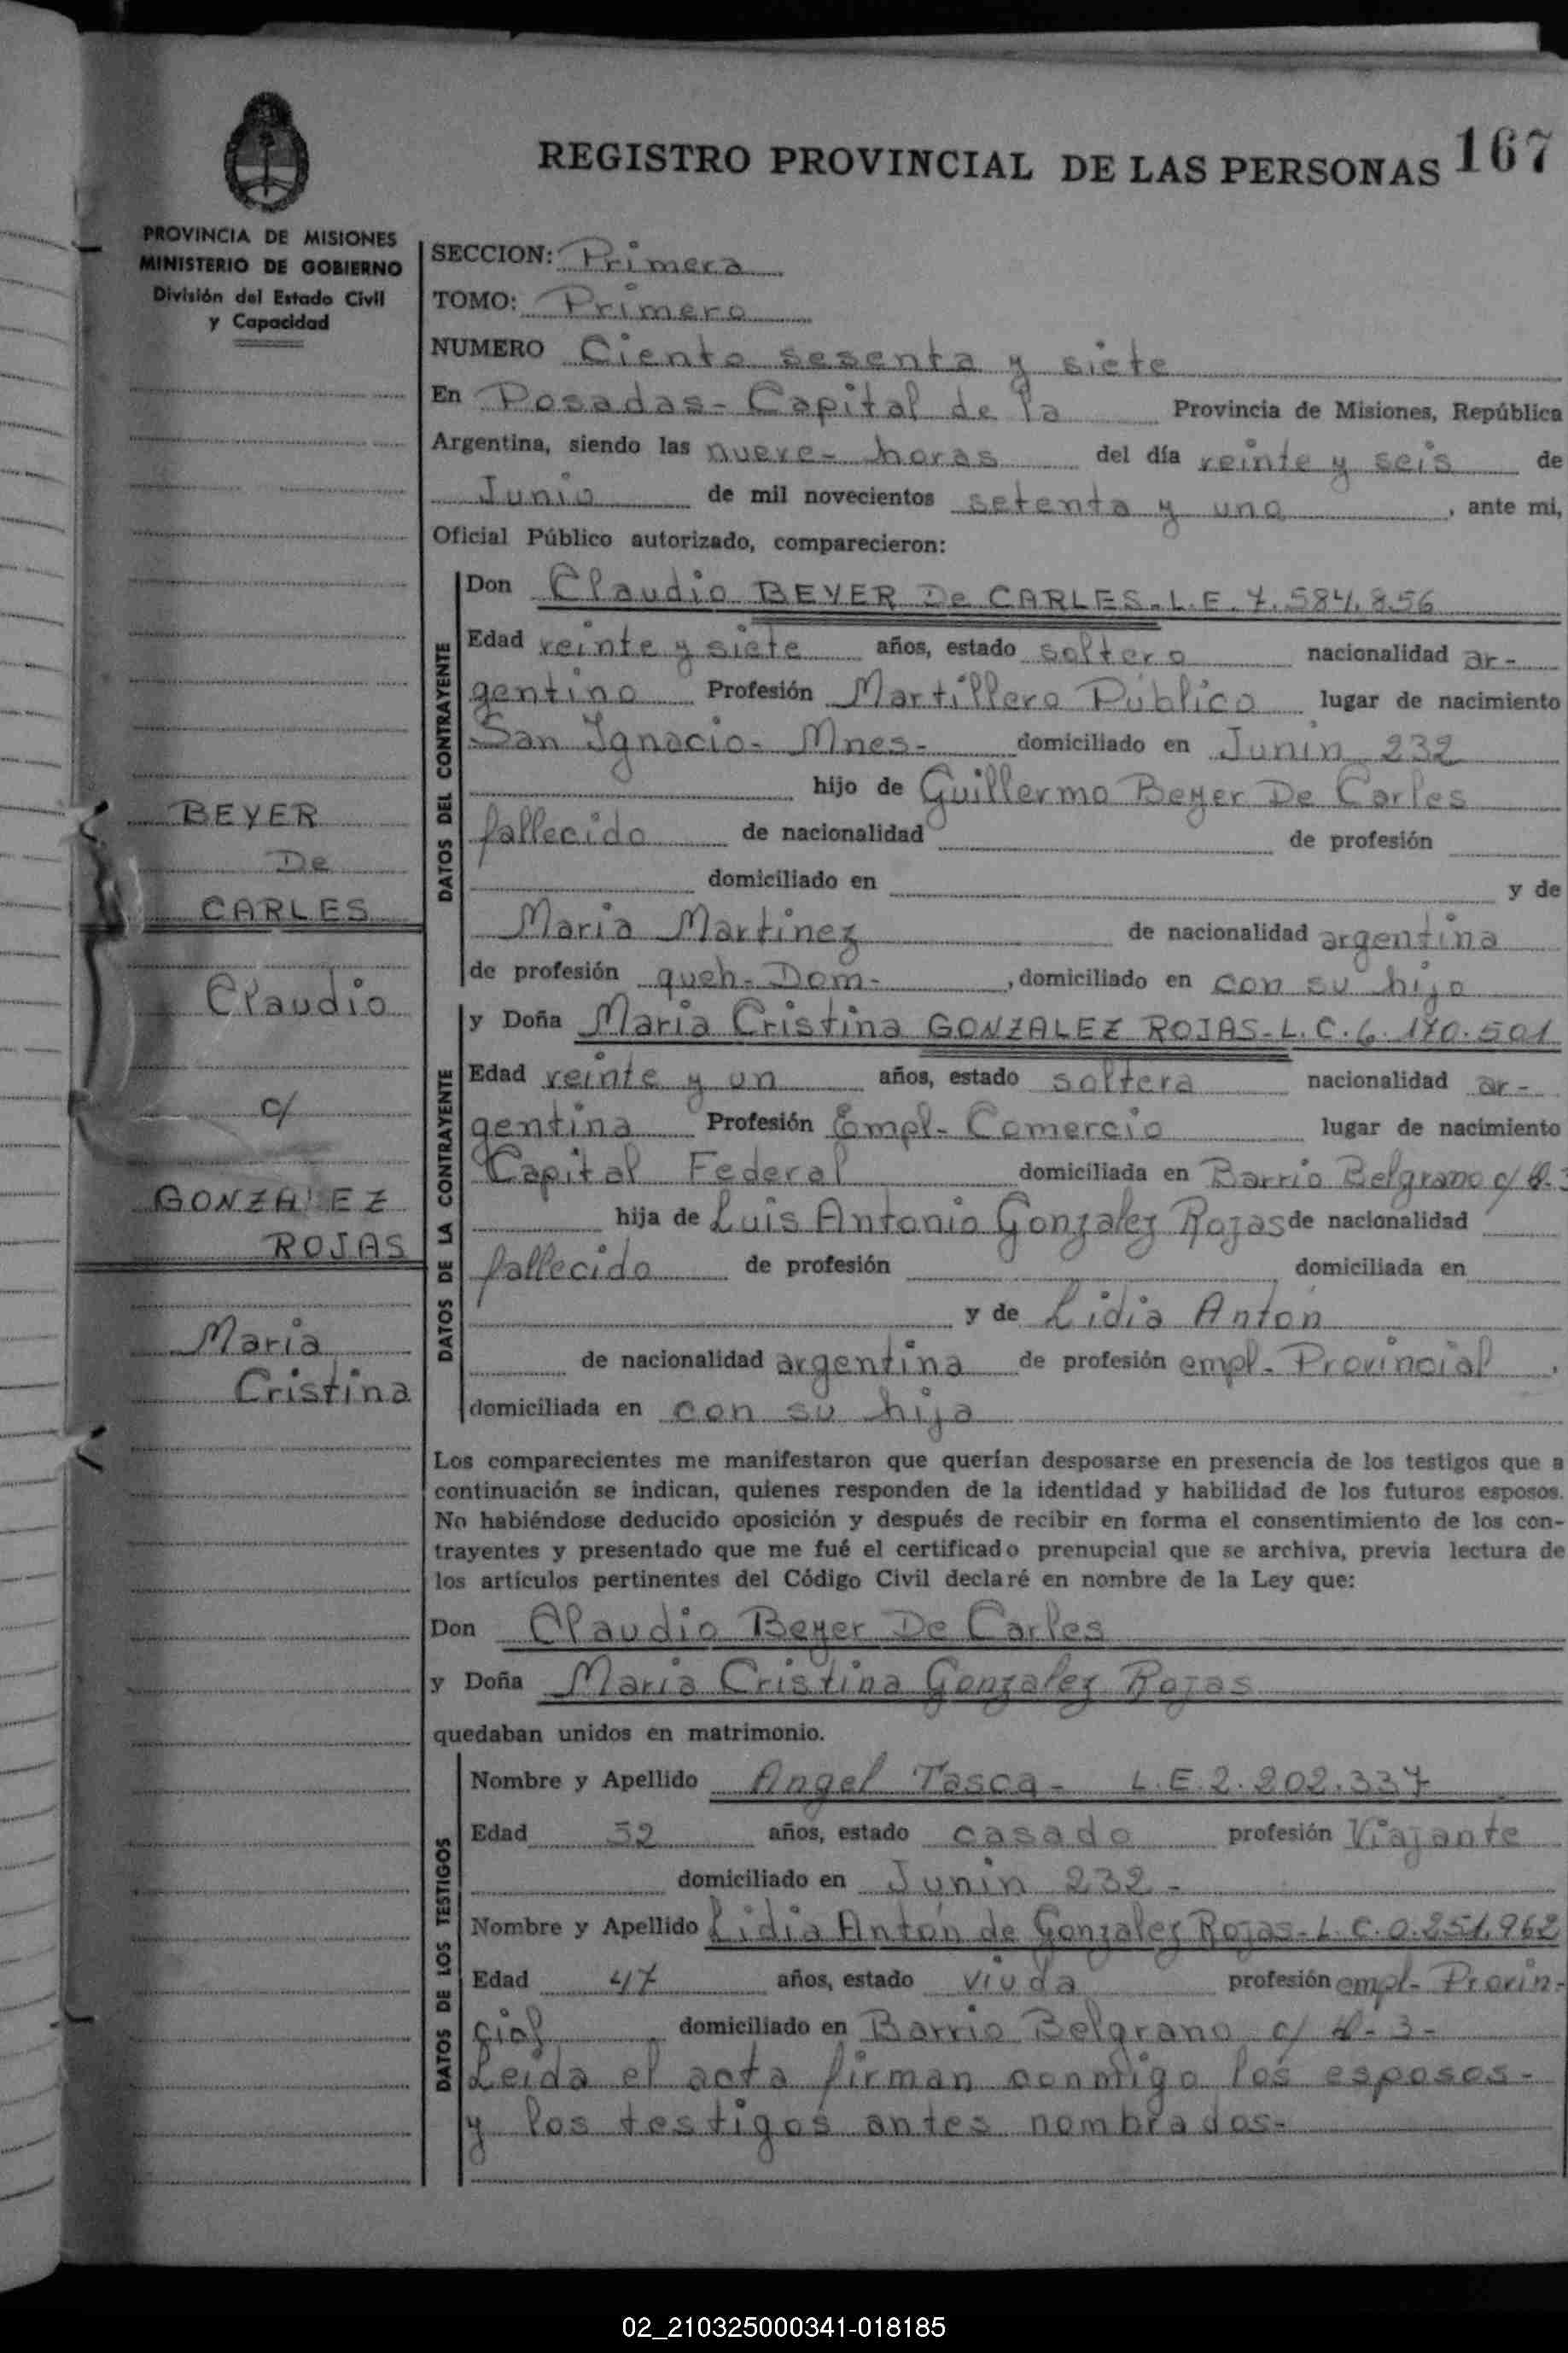 REGISTRO PROVINCIAL DE LAS PERSONAS 167
PROVINCIA DE MISIONES
MINISTERIO DE GOBIERNO
División del Estado Civil
y Capacidad
SECCION: Primera
TOMO: Primero
NUMERO Ciento sesenta y siete
En Posadas - Capital de la Provincia de Misiones, República
Argentina, siendo las nueve - horas del día veinte y seis de
Junio de mil novecientos setenta y uno, ante mi,
Oficial Público autorizado, comparecieron:
BEYER
De
CARLES
Claudio
c/
GONZALEZ
ROJAS
Maria
Cristina
DATOS DEL CONTRAYENTE
Don Claudio BEYER De CARLES - L.E. 7.584.856
Edad veinte y siete años, estado soltero nacionalidad ar-
gentino Profesión Martillero Público lugar de nacimiento
San Ignacio - Mnes - domiciliado en Junin 232
hijo de Guillermo Beyer De Carles
fallecido de nacionalidad de profesión
domiciliado en y de
Maria Martinez de nacionalidad argentina
de profesión queh - Dom - , domiciliado en con su hijo
DATOS DE LA CONTRAYENTE
y Doña Maria Cristina GONZALEZ ROJAS - L.C. 6.170.501
Edad veinte y un años, estado soltera nacionalidad ar-
gentina Profesión Empl - Comercio lugar de nacimiento
Capital Federal domiciliada en Barrio Belgrano c/
hija de Luis Antonio Gonzalez Rojas de nacionalidad
fallecido de profesión domiciliada en
y de Lidia Anton
de nacionalidad argentina de profesión empl - Provincial ,
domiciliada en con su hija
Los comparecientes me manifestaron que querían desposarse en presencia de los testigos que a
continuación se indican, quienes responden de la identidad y habilidad de los futuros esposos.
No habiéndose deducido oposición y después de recibir en forma el consentimiento de los con-
trayentes y presentado que me fué el certificado prenupcial que se archiva, previa lectura de
los artículos pertinentes del Código Civil declaré en nombre de la Ley que:
Don Claudio Beyer De Carles
y Doña Maria Cristina Gonzalez Rojas
quedaban unidos en matrimonio.
DATOS DE LOS TESTIGOS
Nombre y Apellido Angel Tasca - L.E. 2.202.337
Edad 52 años, estado casado profesión Viajante
domiciliado en Junin 232 -
Nombre y Apellido Lidia Antón de Gonzalez Rojas - L.C. 0.251.962
Edad 47 años, estado viuda profesión empl - Provin-
cial domiciliado en Barrio Belgrano c/ 3 -
Leida el acta firman conmigo los esposos -
y los testigos antes nombrados -
02_210325000341-018185